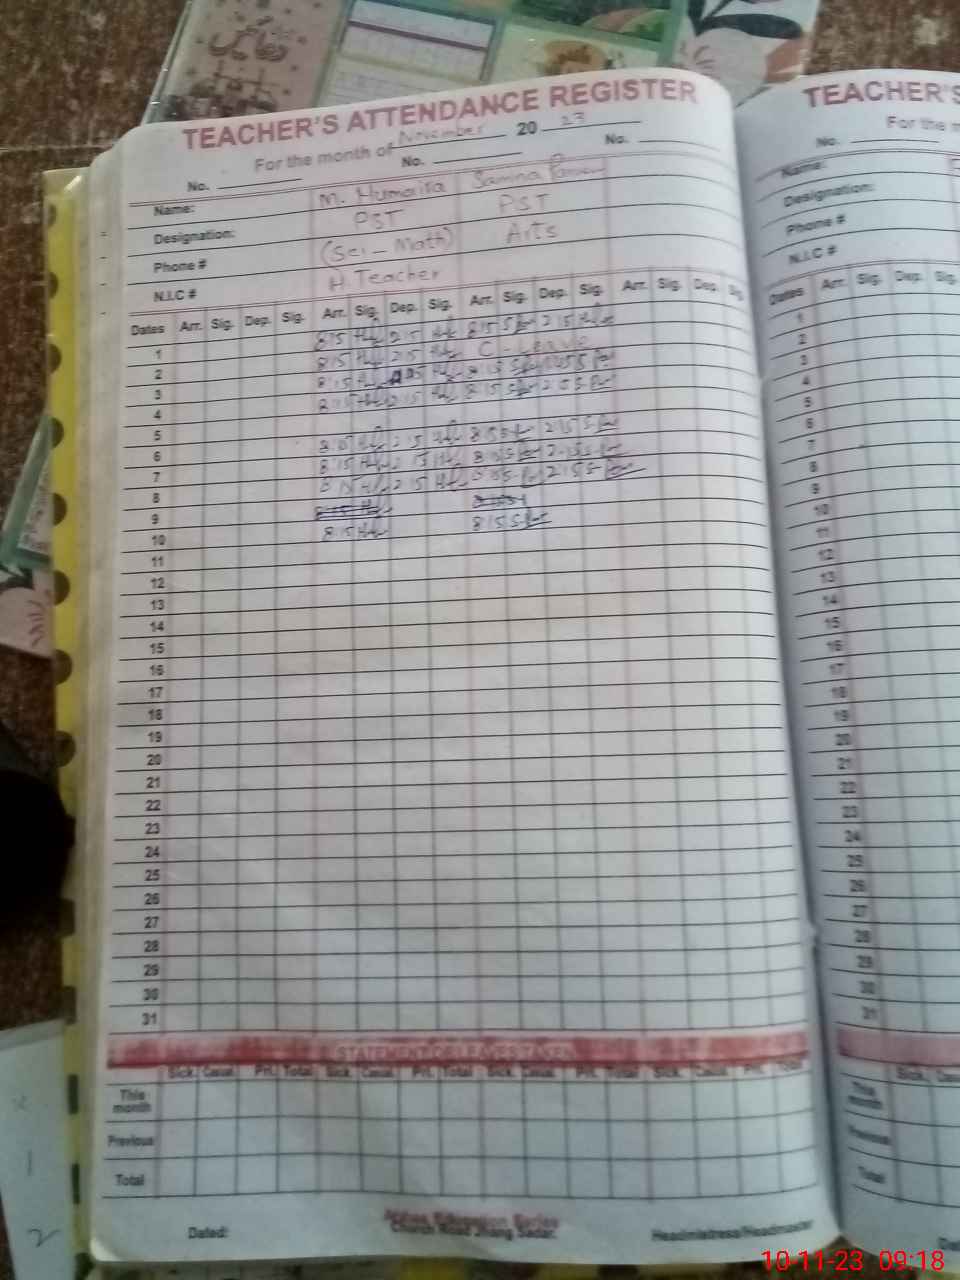 TEACHER'S ATTENDANCE REGISTER
For the month of November 20 23
No. No. No.
Name: M. Humaira Samina
Designation: PST PST
Phone # (Sci - Math) Arts
N.I.C # H. Teacher
Dates Arr. Sig. Dep. Sig. Arr. Sig. Dep. Sig. Arr. Sig. Dep. Sig. Arr. Sig. Dep. Sig.
1 8:15 2:15 8:15 2:15
2 8:15 2:15 C - Leave
3 8:15 8:15
4 8:15 2:15 8:15 2:15
5
6 8:15 2:15 8:15 2:15
7 8:15 2:15 8:15 2:15
8 8:15 2:15 8:15 2:15
9
10 8:15 8:15
11
12
13
14
15
16
17
18
19
20
21
22
23
24
25
26
27
28
29
30
31
STATEMENT OF LEAVES TAKEN
Sick. Casual. Pri. Total Sick. Casual. Pri. Total Sick. Casual. Pri. Total Sick. Casual. Pri. Total
This month
Previous
Total
Dated: Church Road Jhang Sadar. Headmistress/Headmaster
TEACHER'S
For the m
No.
Name:
Designation:
Phone #
N.I.C #
Dates Arr. Sig. Dep. Sig.
1
2
3
4
5
6
7
8
9
10
11
12
13
14
15
16
17
18
19
20
21
22
23
24
25
26
27
28
29
30
31
Sick.
This month
Previous
Total
10-11-23 09:18